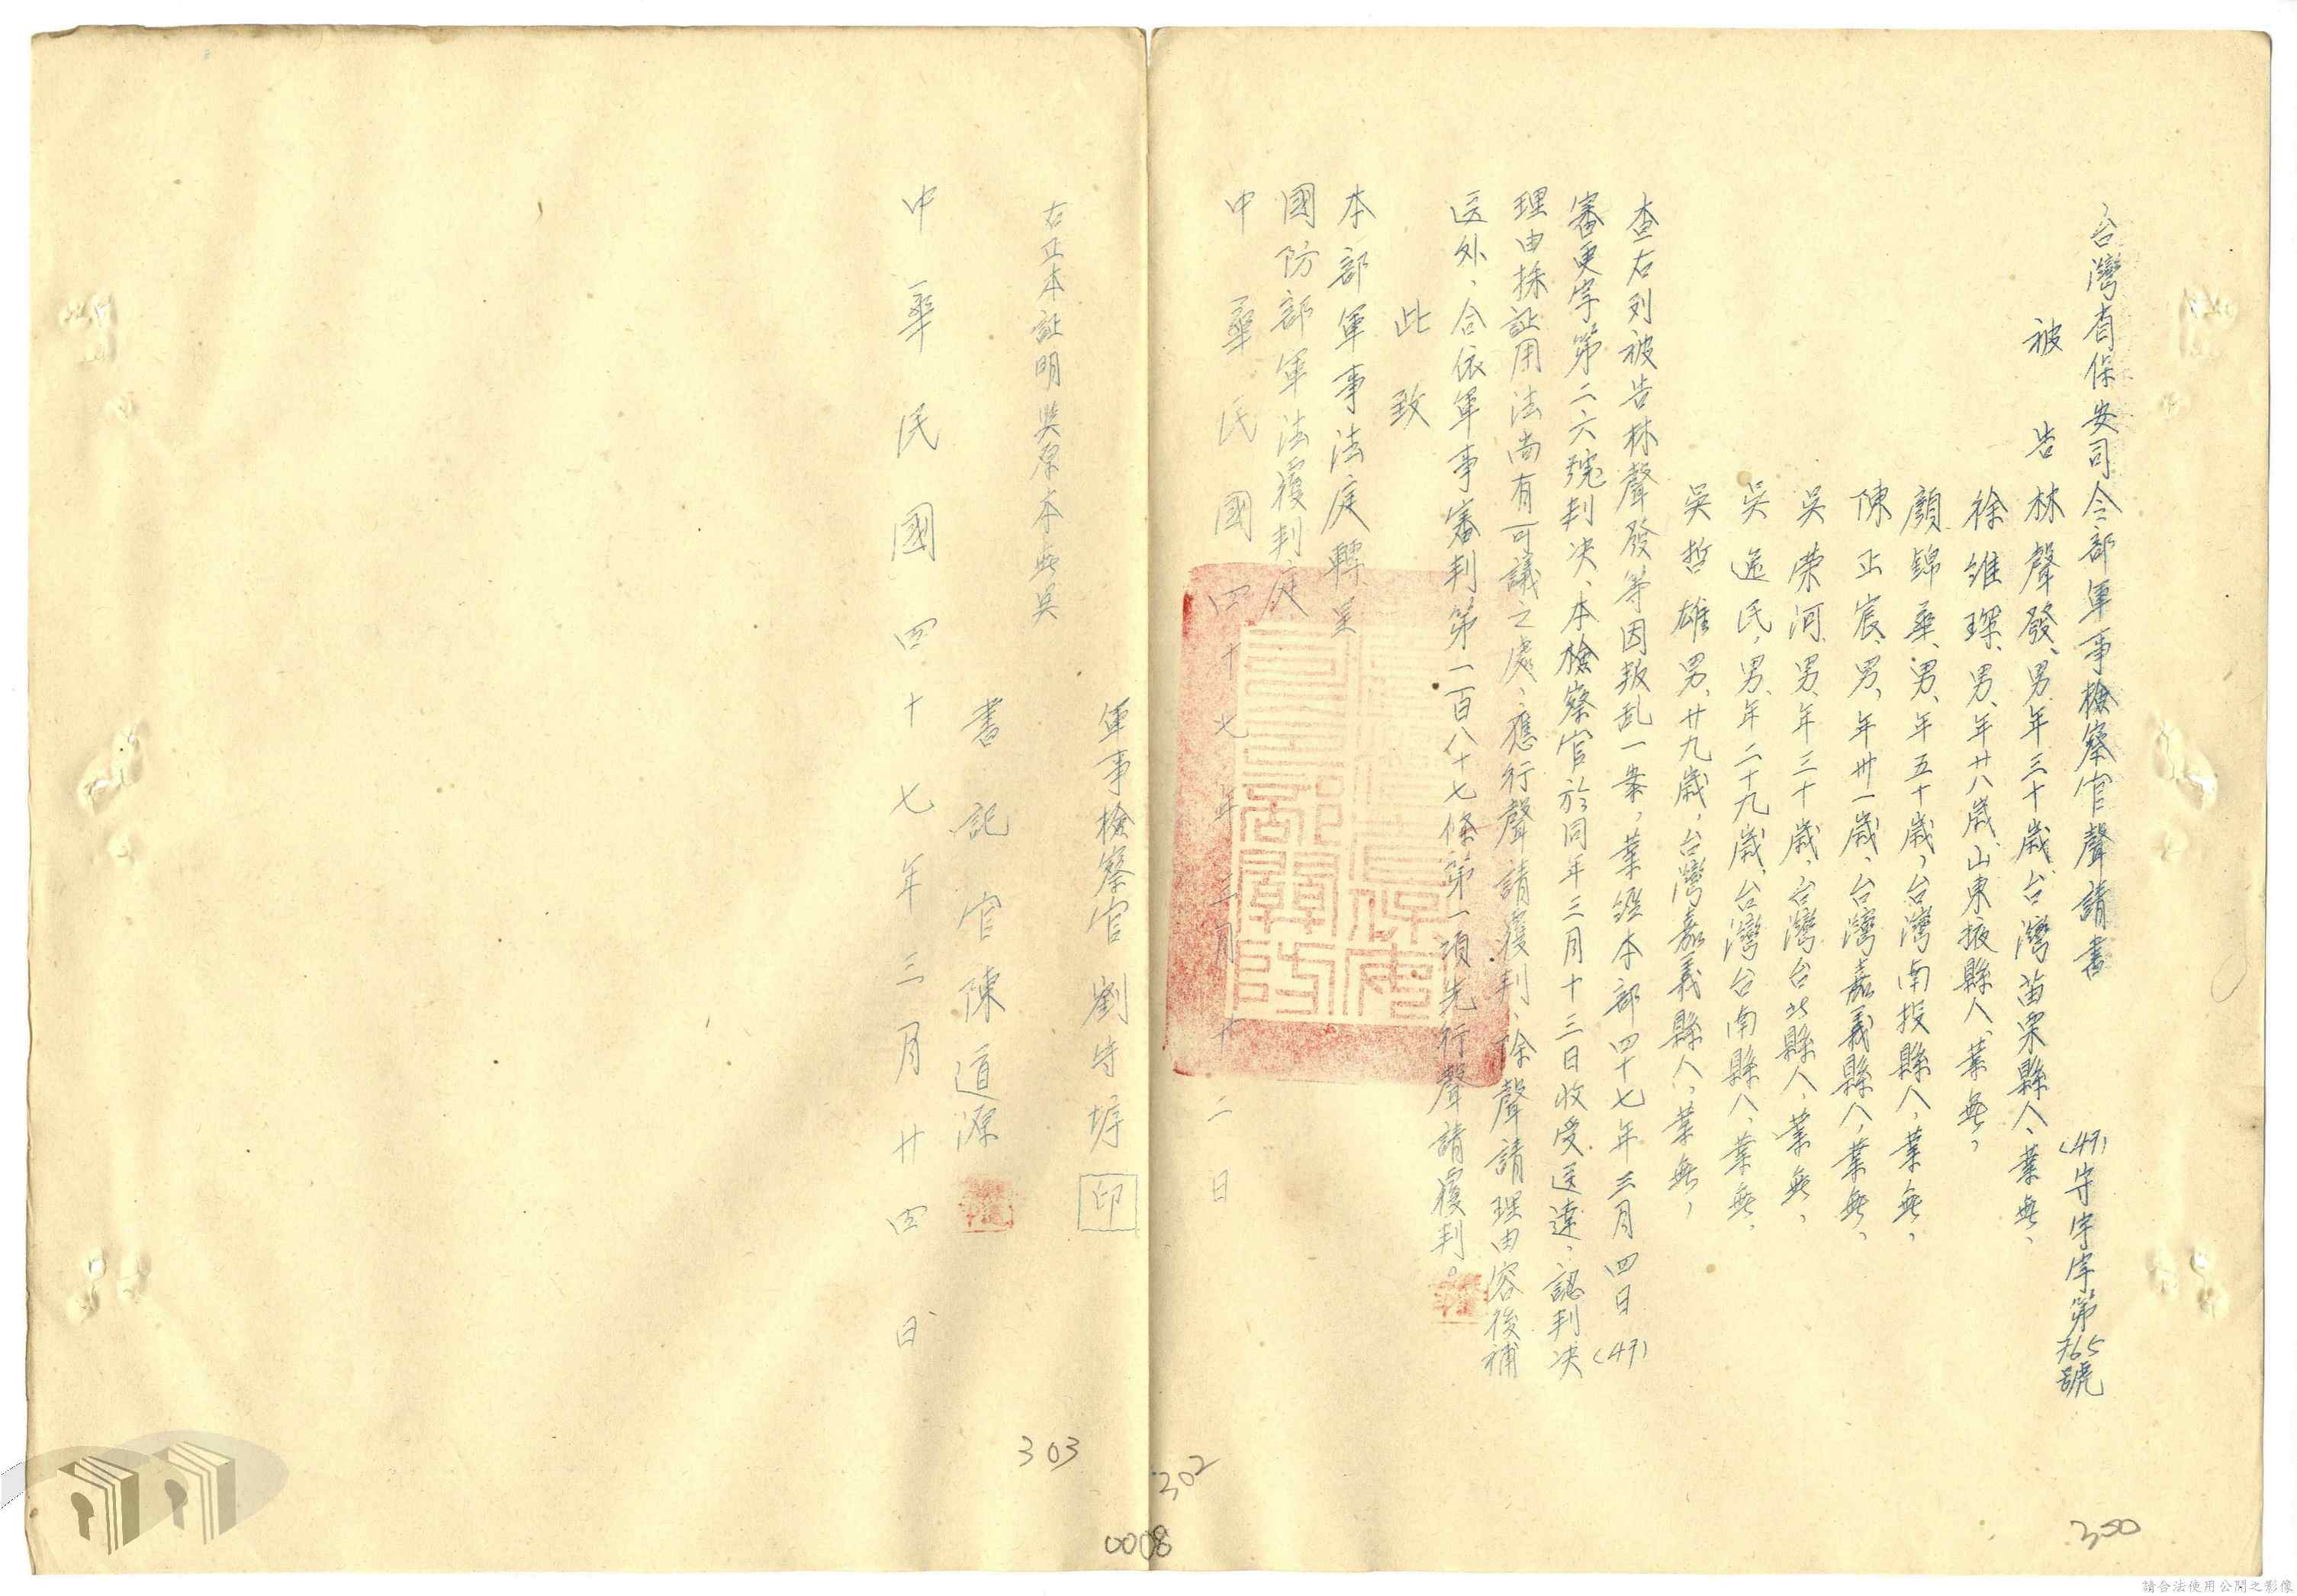 台灣省保安司令部軍事檢察官聲請書 (47)守字字第765號
被告 林聲發、男、年三十歲、台灣苗栗縣人、業無、
徐維琛、男、年廿八歲、山東掖縣人、業無、
顏錦華、男、年五十歲、台灣南投縣人、業無、
陳正宸、男、年卅一歲、台灣嘉義縣人、業無、
吳榮河、男、年三十歲、台灣台北縣人、業無、
吳 民、男、年二十九歲、台灣台南縣人、業無、
吳哲雄 男、廿九歲、台灣嘉義縣人、業無、
查右列被告林聲發等因叛乱一案，業經本部四十七年三月四日(47)
審更字第二六號判决、本檢察官於同年三月十三日收受送達，認判决
理由採証用法尚有可議之處，應行聲請覆判、除聲請理由容後補
送外、合依軍事審判第一百八十七條第一項先行聲請覆判。
此致
本部軍事法庭轉呈
國防部軍法覆判庭
中華民國四十七年三月廿二日
軍事檢察官 劉守 印
右正本証明與原本無異
書記官陳道源
中華民國四十七年三月廿四日
303
302
0008
300
請合法使用公開之影像